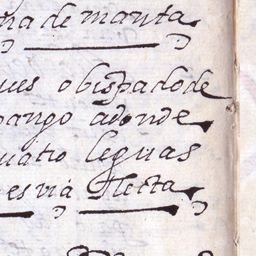 ña de manta
ues obispado de
pango adonde
uatro leguas
es via Recta